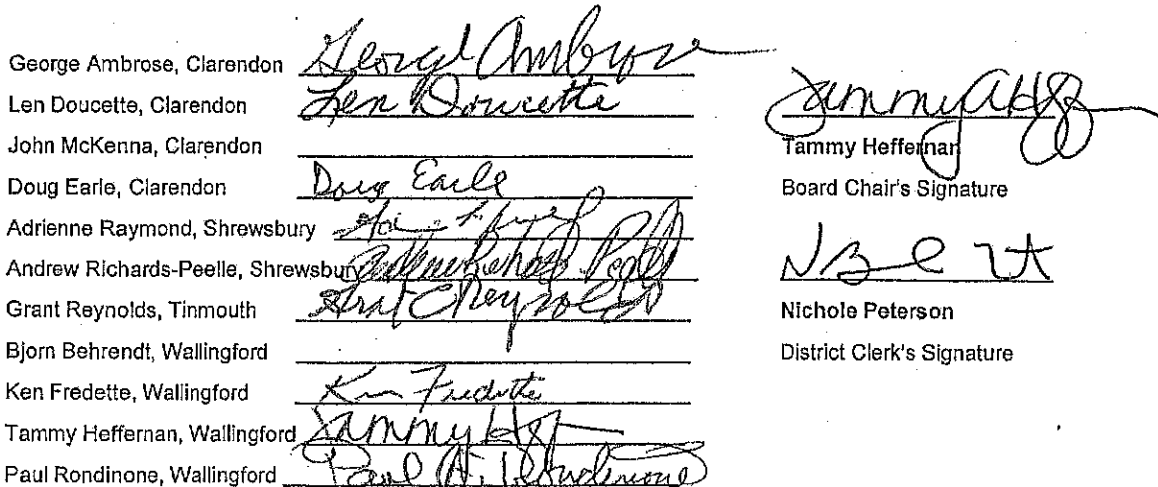 George Ambrose, Clarendon George Ambrose
Len Doucette, Clarendon Len Doucette
John McKenna, Clarendon
Doug Earle, Clarendon Doug Earle
Adrienne Raymond, Shrewsbury
Andrew Richards-Peelle, Shrewsbury Andrew Richards-Peelle
Grant Reynolds, Tinmouth Grant C Reynolds
Bjorn Behrendt, Wallingford
Ken Fredette, Wallingford Ken Fredette
Tammy Heffernan, Wallingford Tammy
Paul Rondinone, Wallingford Paul A. Rondinone
Tammy A
Tammy Heffernan
Board Chair's Signature
Nichole Peterson
District Clerk's Signature